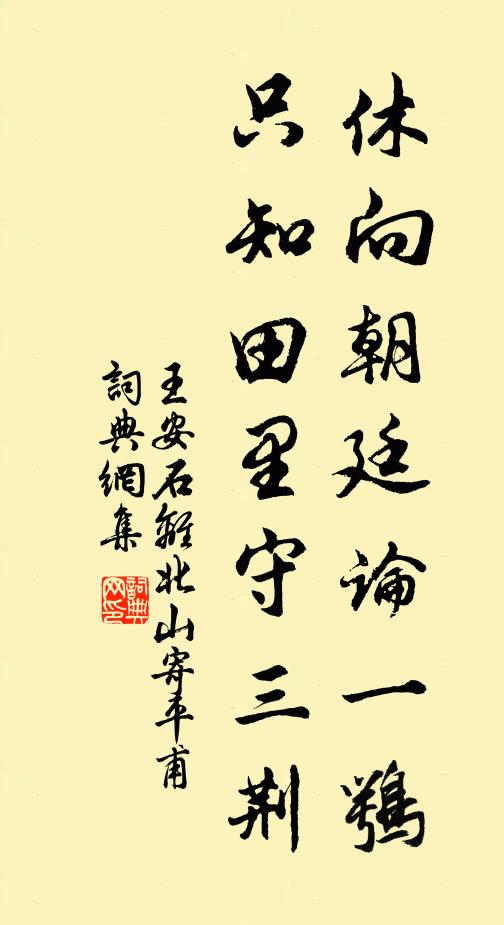 休向朝廷論一鶚
只知田里守三荆
王安石離北山寄平甫
詞典網集
詞典網印